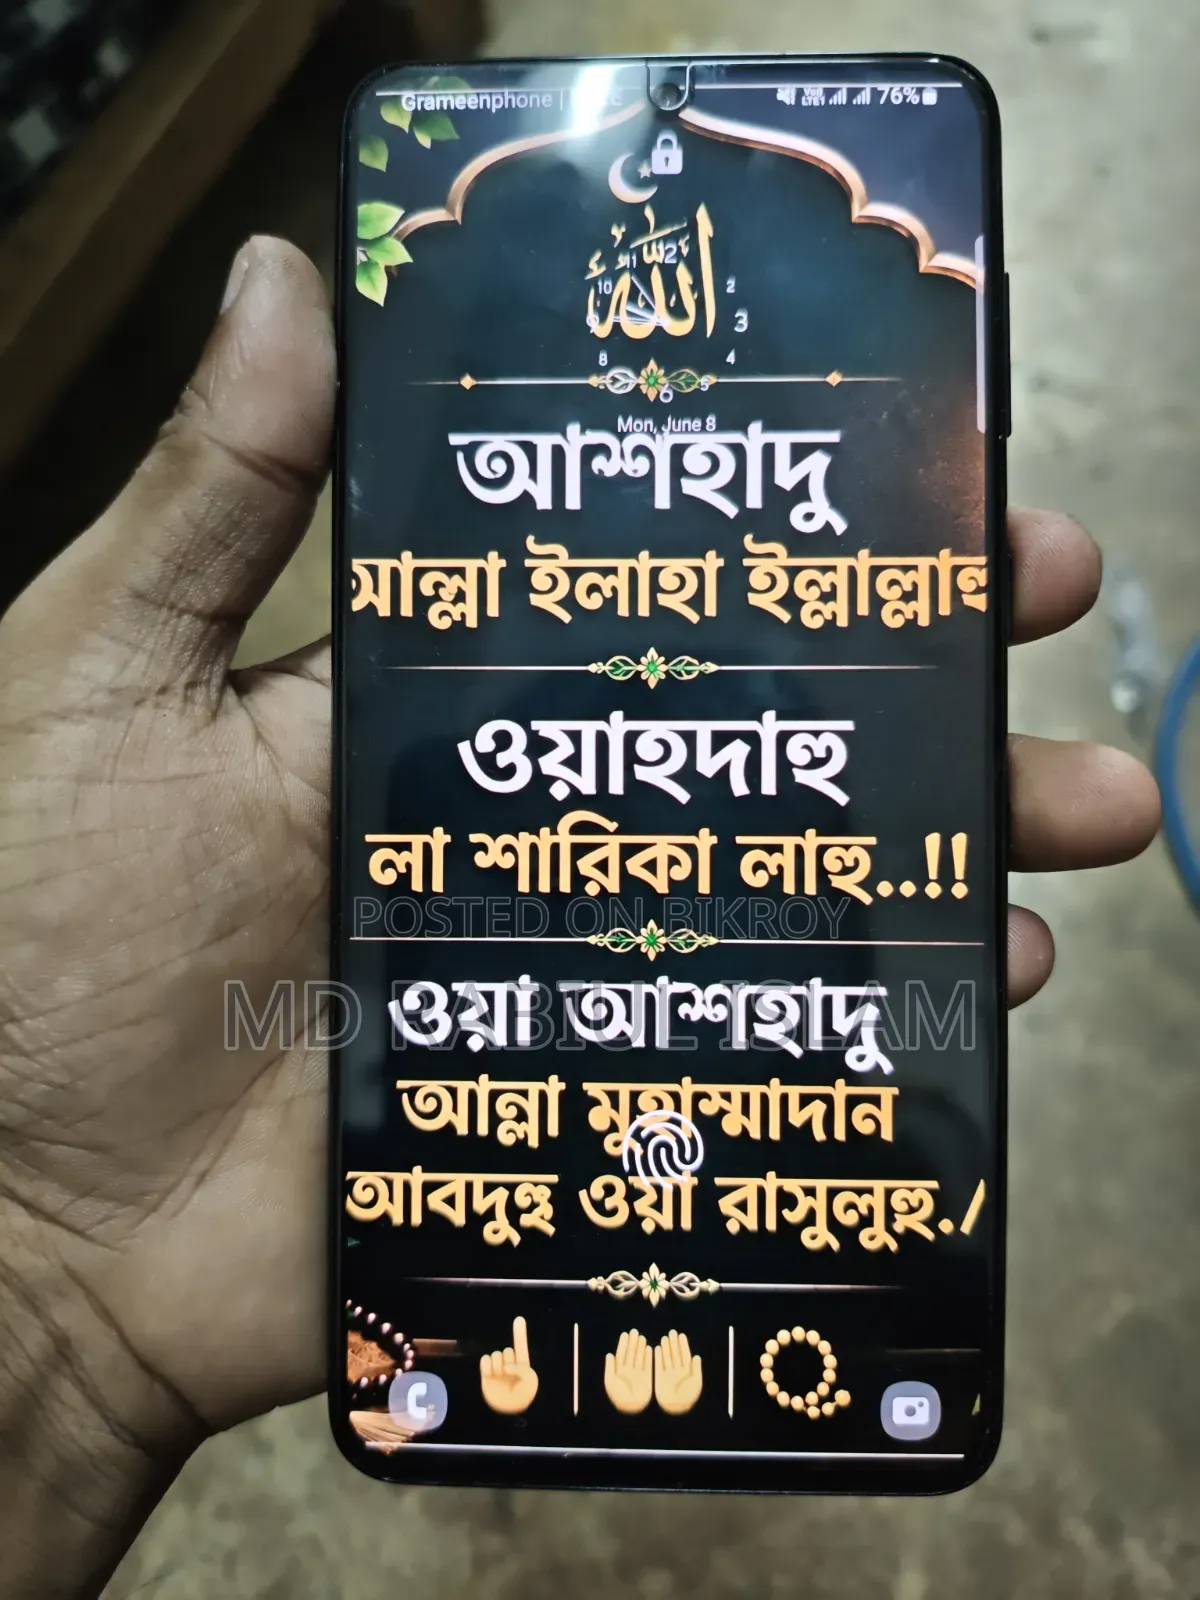 Grameenphone |
VoD LTE1 76%
الله
11 12
10 2
9 3
8 4
6 5
Mon, June 8
আশহাদু
আল্লা ইলাহা ইল্লাল্লাহু
ওয়াহদাহু
লা শারিকা লাহু..!!
POSTED ON BIKROY
MD RABIUL ISLAM
ওয়া আশহাদু
আন্না মুহাম্মাদান
আবদুহু ওয়া রাসুলুহু./